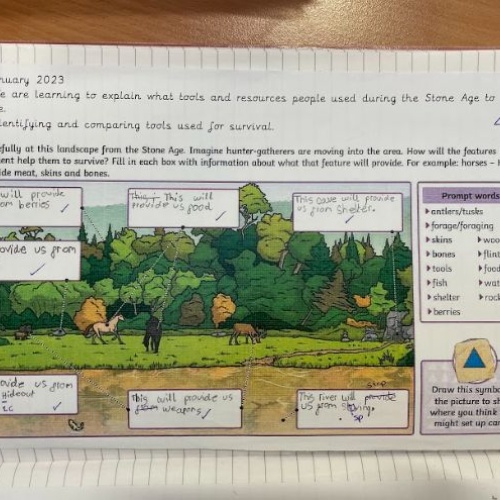 nuary 2023
e are learning to explain what tools and resources people used during the Stone Age to
e.
dentifying and comparing tools used for survival.
efully at this landscape from the Stone Age. Imagine hunter-gatherers are moving into the area. How will the features
ent help them to survive? Fill in each box with information about what that feature will provide. For example: horses –
ide meat, skins and bones.
will provide
om berries
This will
provide us food
This cave will provide
us from shelter.
ovide us from
ovide us from
hideout
This will provide us
weapons
This river will provide
us from
sp
Prompt words
antlers/tusks
forage/foraging
skins
woo
bones
flint
tools
foo
fish
wat
shelter
rock
berries
Draw this symbo
the picture to sh
where you think
might set up cam